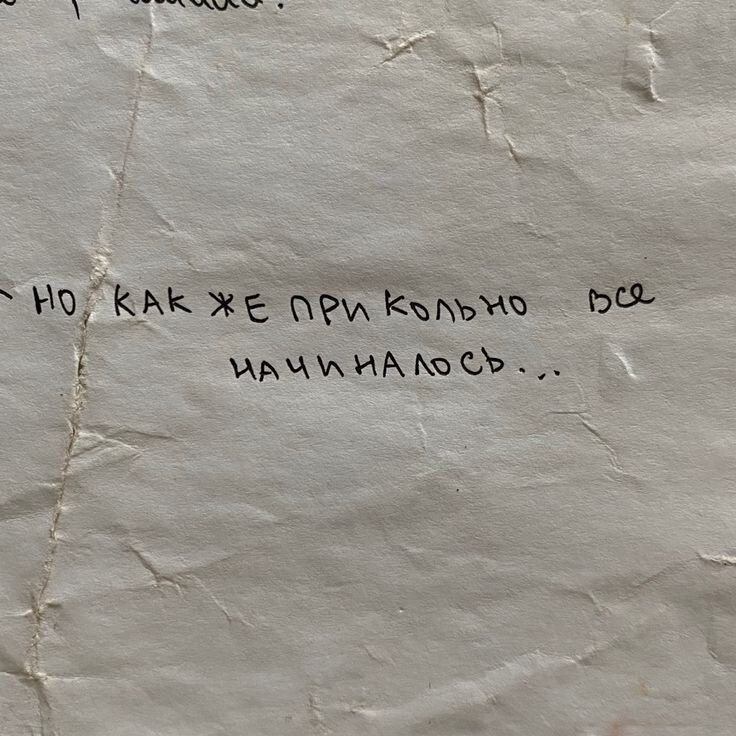 НО КАК ЖЕ ПРИКОЛЬНО все
НАЧИНАЛОСЬ...